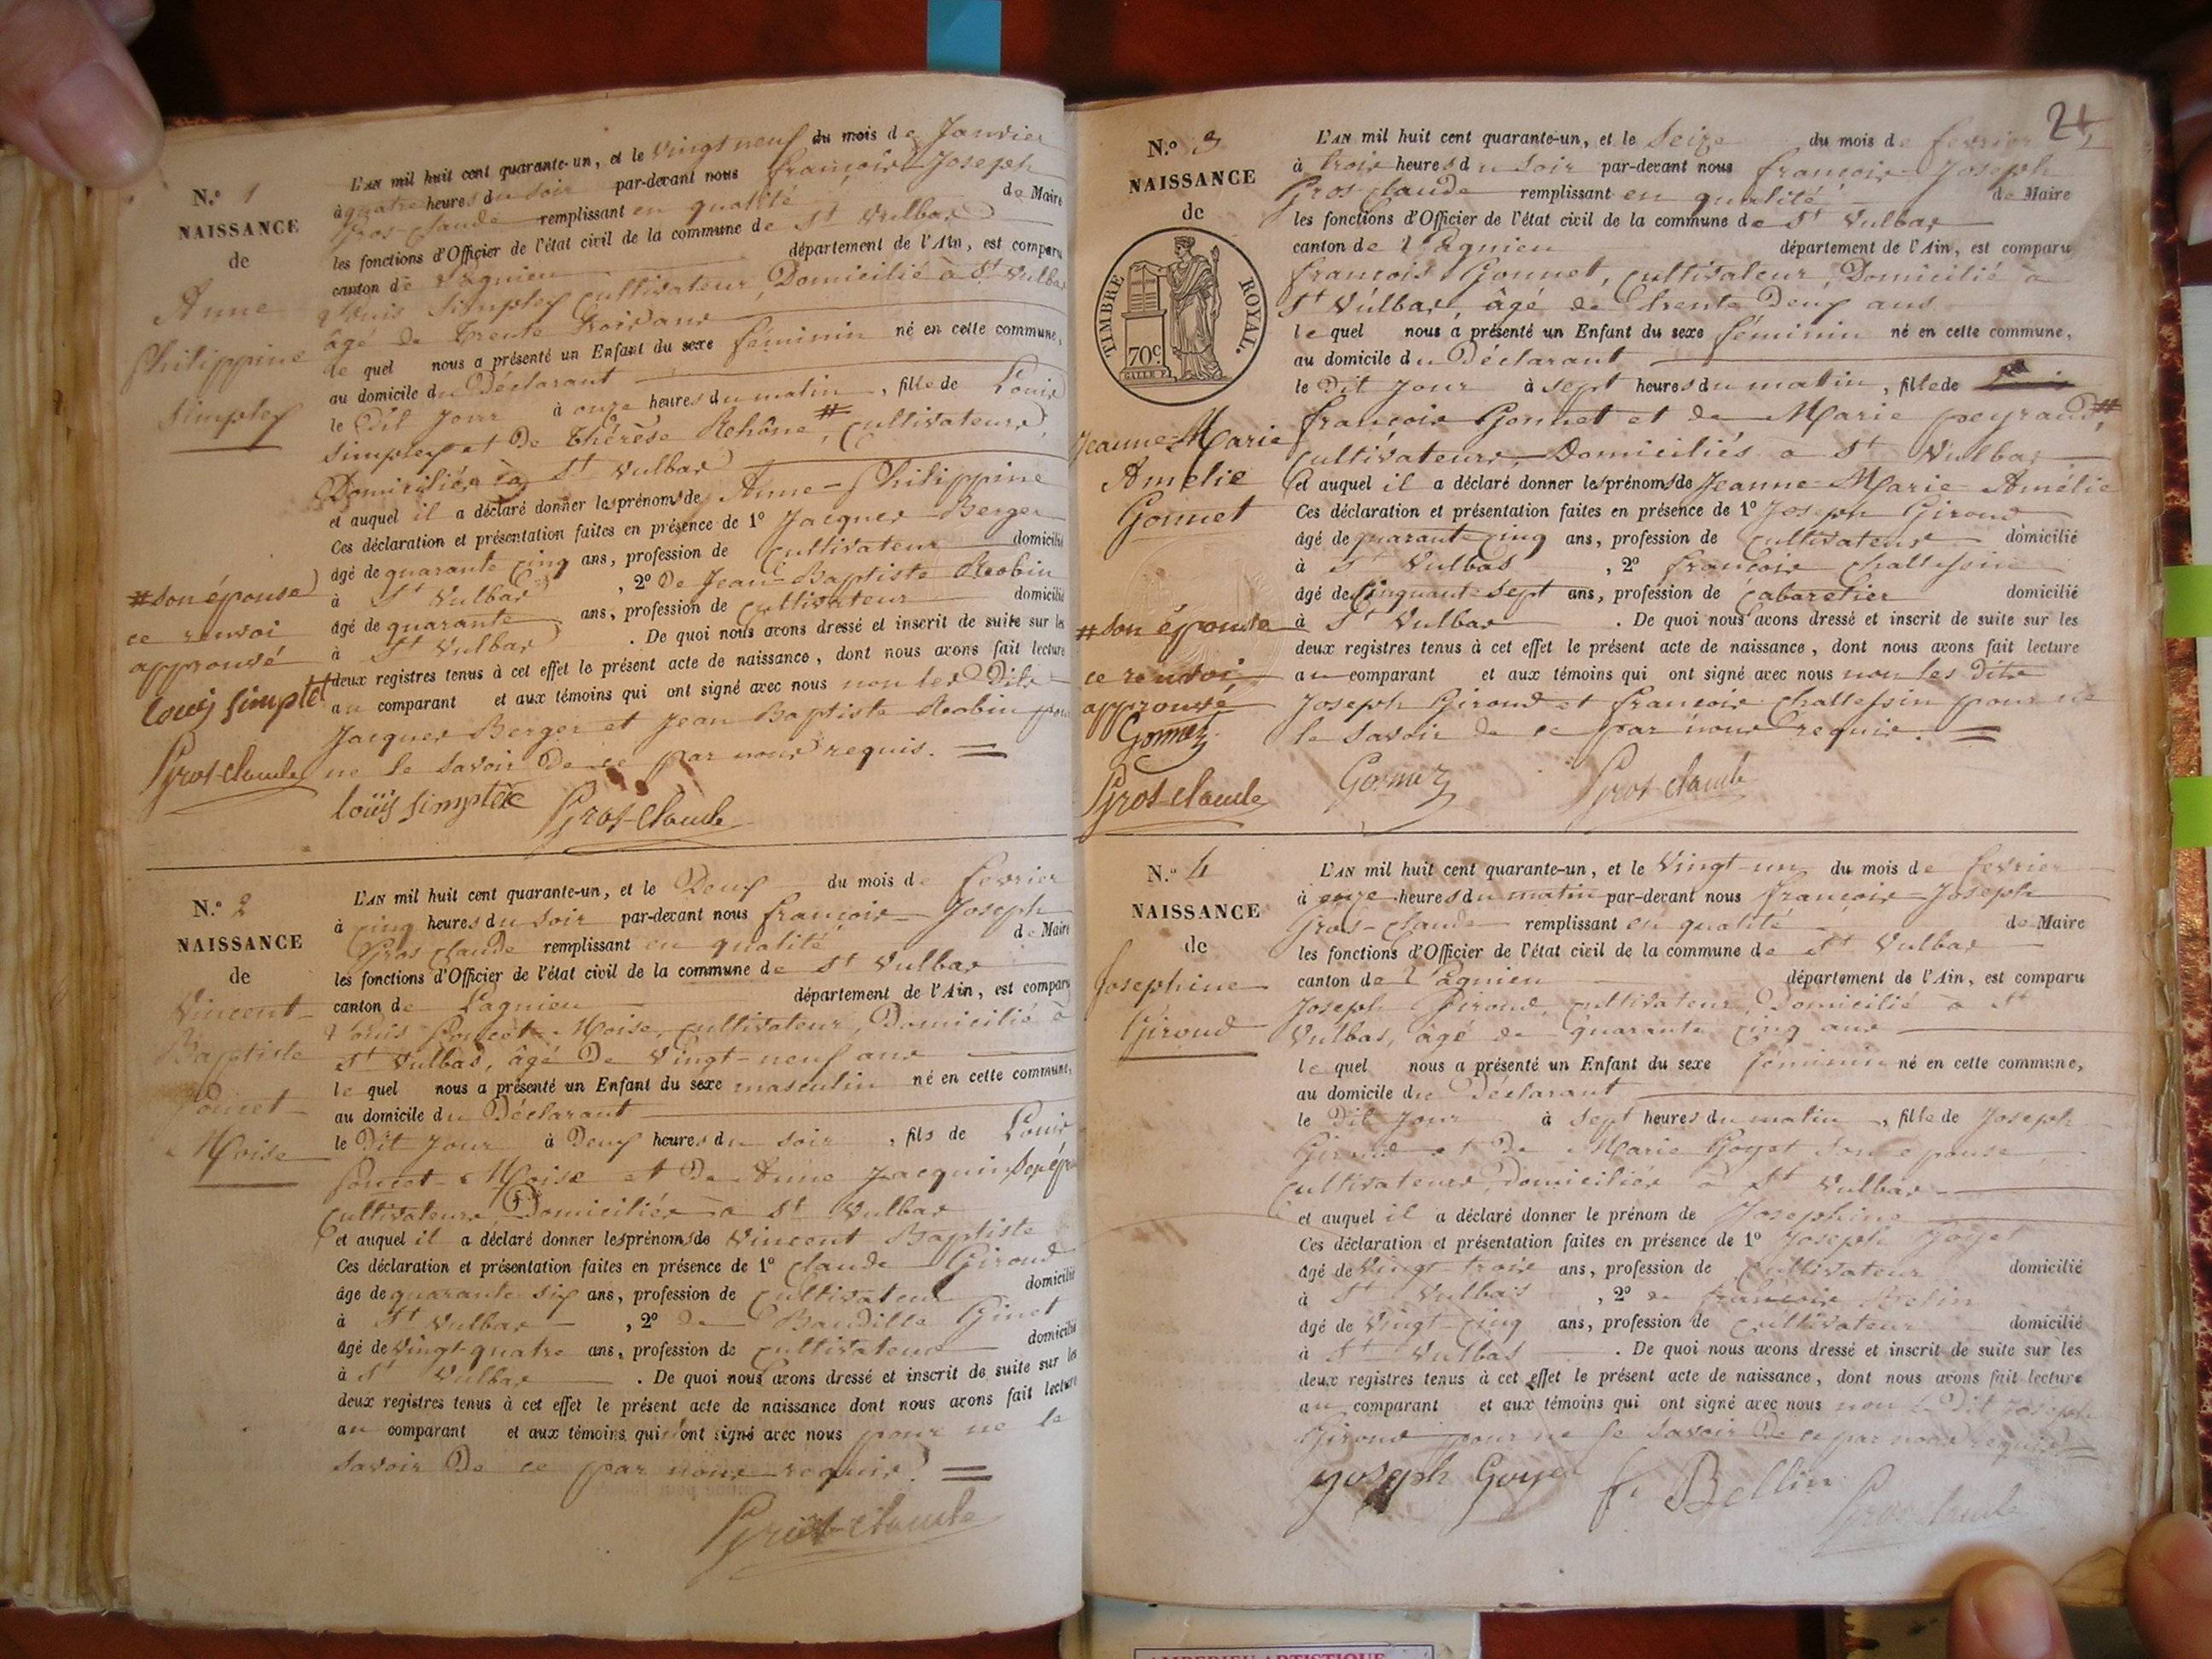 N.º 1
NAISSANCE
de
Anne
Philippine
Simplex
L'AN mil huit cent quarante-un, et le vingt neuf du mois de Janvier
à quatre heures du soir par-devant nous françois Joseph
Gros-claude remplissant en qualité de Maire
les fonctions d'Officier de l'état civil de la commune de St Vulbas
canton de Lagnieu département de l'Ain, est comparu
Louis Simplex cultivateur, Domicilié à St Vulbas
âgé de trente trois ans
le quel nous a présenté un Enfant du sexe féminin né en cette commune,
au domicile du Déclarant
le Dit Jour à onze heures du matin, fille de Louis
Simplex et De Thérèse Rehône #, cultivateurs,
Domiciliés à St Vulbas
et auquel il a déclaré donner les prénoms de Anne-Philippine
Ces déclaration et présentation faites en présence de 1º Jacques Berger
âgé de quarante cinq ans, profession de cultivateur domicilié
à St Vulbas, 2º De Jean-Baptiste Robin
âgé de quarante ans, profession de cultivateur domicilié
à St Vulbas. De quoi nous avons dressé et inscrit de suite sur les
deux registres tenus à cet effet le présent acte de naissance, dont nous avons fait lecture
au comparant et aux témoins qui ont signé avec nous non les Dits
Jacques Berger et Jean Baptiste Robin pour
ne le savoir De ce par nous requis. =
# son épouse
ce renvoi
approuvé
louis simplex
Gros-claude
loüis simplex Gros-Claude
N.º 2
NAISSANCE
de
Vincent-
Baptiste
Poncet-
Moise
L'AN mil huit cent quarante-un, et le Deux du mois de fevrier
à cinq heures du soir par-devant nous françois-Joseph
Gros claude remplissant en qualité de Maire
les fonctions d'Officier de l'état civil de la commune de St Vulbas
canton de Lagnieu département de l'Ain, est comparu
Louis Poncet-Moise, cultivateur, Domicilié à
St Vulbas, âgé De Vingt-neuf ans
le quel nous a présenté un Enfant du sexe masculin né en cette commune,
au domicile du Déclarant
le Dit Jour à Deux heures du soir, fils de Louis
Poncet-Moise et De Anne Jacquin, son épouse
cultivateurs, Domiciliés à St Vulbas
et auquel il a déclaré donner les prénoms de Vincent Baptiste
Ces déclaration et présentation faites en présence de 1º Claude Giroud
âgé de quarante six ans, profession de cultivateur domicilié
à St Vulbas, 2º De Baudille Ginet
âgé de Vingt-quatre ans, profession de cultivateur domicilié
à St Vulbas. De quoi nous avons dressé et inscrit de suite sur les
deux registres tenus à cet effet le présent acte de naissance dont nous avons fait lecture
au comparant et aux témoins qui ont signé avec nous pour ne le
savoir De ce par nous requis. =
Gros-claude
24
N.º 3
NAISSANCE
de
TIMBRE ROYAL.
70c.
Jeanne-Marie
Amélie
Gonnet
L'AN mil huit cent quarante-un, et le Seize du mois de fevrier
à trois heures du soir par-devant nous françois Joseph
Gros-claude remplissant en qualité de Maire
les fonctions d'Officier de l'état civil de la commune de St Vulbas
canton de Lagnieu département de l'Ain, est comparu
françois Gonnet, cultivateur, Domicilié à
St Vulbas, âgé de trente Deux ans
le quel nous a présenté un Enfant du sexe féminin né en cette commune,
au domicile du Déclarant
le Dit Jour à sept heures du matin, fille de
françois Gonnet et de Marie peyraud #,
cultivateurs, Domiciliés à St Vulbas
et auquel il a déclaré donner les prénoms de Jeanne-Marie-Amélie
Ces déclaration et présentation faites en présence de 1º Joseph Giroud
âgé de quarante cinq ans, profession de cultivateur domicilié
à St Vulbas, 2º françois Challessin
âgé de Cinquante sept ans, profession de Cabaretier domicilié
à St Vulbas. De quoi nous avons dressé et inscrit de suite sur les
deux registres tenus à cet effet le présent acte de naissance, dont nous avons fait lecture
au comparant et aux témoins qui ont signé avec nous non les dits
Joseph Giroud et françois Challessin pour ne
le savoir de ce par nous requis. =
# son épouse
ce renvoi
approuvé
Gonnet
Gros-claude
Gonnet Gros claude
N.º 4
NAISSANCE
de
Josephine
Giroud
L'AN mil huit cent quarante-un, et le Vingt-un du mois de fevrier
à onze heures du matin par-devant nous françois-Joseph
Gros-claude remplissant en qualité de Maire
les fonctions d'Officier de l'état civil de la commune de St Vulbas
canton de Lagnieu département de l'Ain, est comparu
Joseph Giroud, cultivateur, Domicilié à St
Vulbas, âgé de quarante cinq ans
le quel nous a présenté un Enfant du sexe féminin né en cette commune,
au domicile du Déclarant
le Dit Jour à sept heures du matin, fille de Joseph
Giroud et De Marie Goyet son épouse
cultivateurs, domiciliés à St Vulbas
et auquel il a déclaré donner le prénom de Josephine
Ces déclaration et présentation faites en présence de 1º Joseph Goyet
âgé de Vingt trois ans, profession de cultivateur domicilié
à St Vulbas, 2º de françois Belin
âgé de Vingt-cinq ans, profession de cultivateur domicilié
à St Vulbas. De quoi nous avons dressé et inscrit de suite sur les
deux registres tenus à cet effet le présent acte de naissance, dont nous avons fait lecture
au comparant et aux témoins qui ont signé avec nous non le Dit Joseph
Giroud pour ne le savoir De ce par nous requis =
Joseph Goyet f. Bellin Gros claude
AMBERIEU ARTISTIQUE